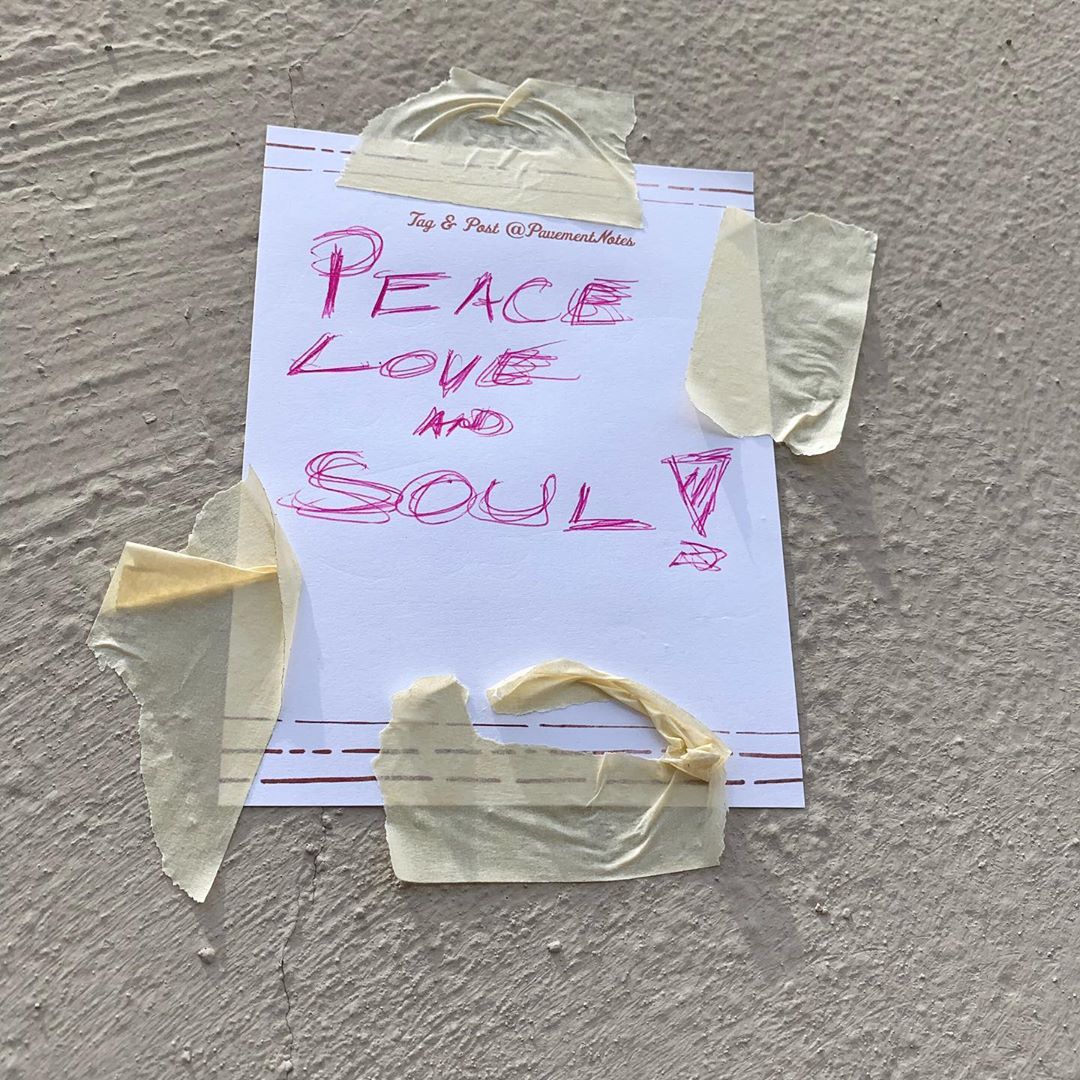 Tag & Post @PavementNotes
PEACE
LOVE
AND
SOUL!